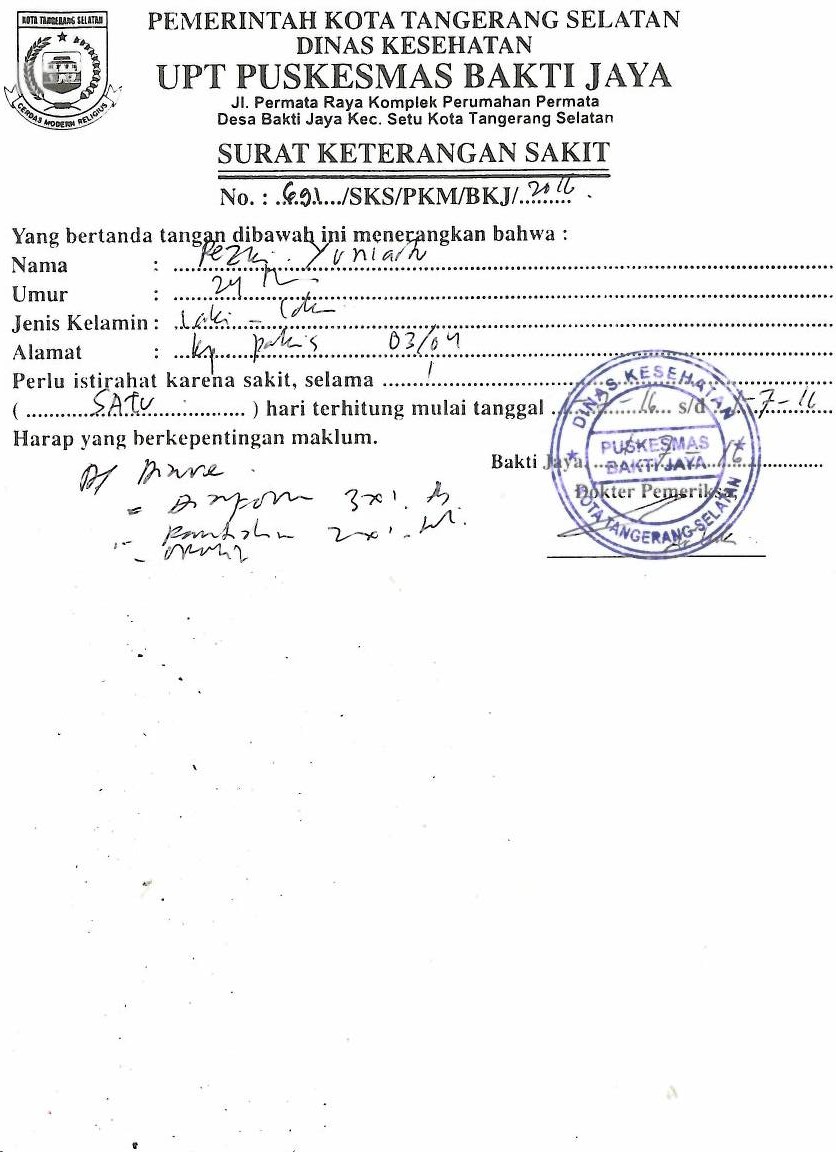 KOTA TANGERANG SELATAN
CERDAS MODERN RELIGIUS
PEMERINTAH KOTA TANGERANG SELATAN
DINAS KESEHATAN
UPT PUSKESMAS BAKTI JAYA
Jl. Permata Raya Komplek Perumahan Permata
Desa Bakti Jaya Kec. Setu Kota Tangerang Selatan
SURAT KETERANGAN SAKIT
No. : 691/SKS/PKM/BKJ/2016
Yang bertanda tangan dibawah ini menerangkan bahwa :
Nama :
Umur : 24
Jenis Kelamin : Laki -
Alamat : kp pakis 03/04
Perlu istirahat karena sakit, selama 1
( SATU ) hari terhitung mulai tanggal s/d
Harap yang berkepentingan maklum.
Bakti Jaya,
Dokter Pemeriksa,
3x1
2x1
DINAS KESEHATAN
PUSKESMAS
BAKTI JAYA
KOTA TANGERANG SELATAN